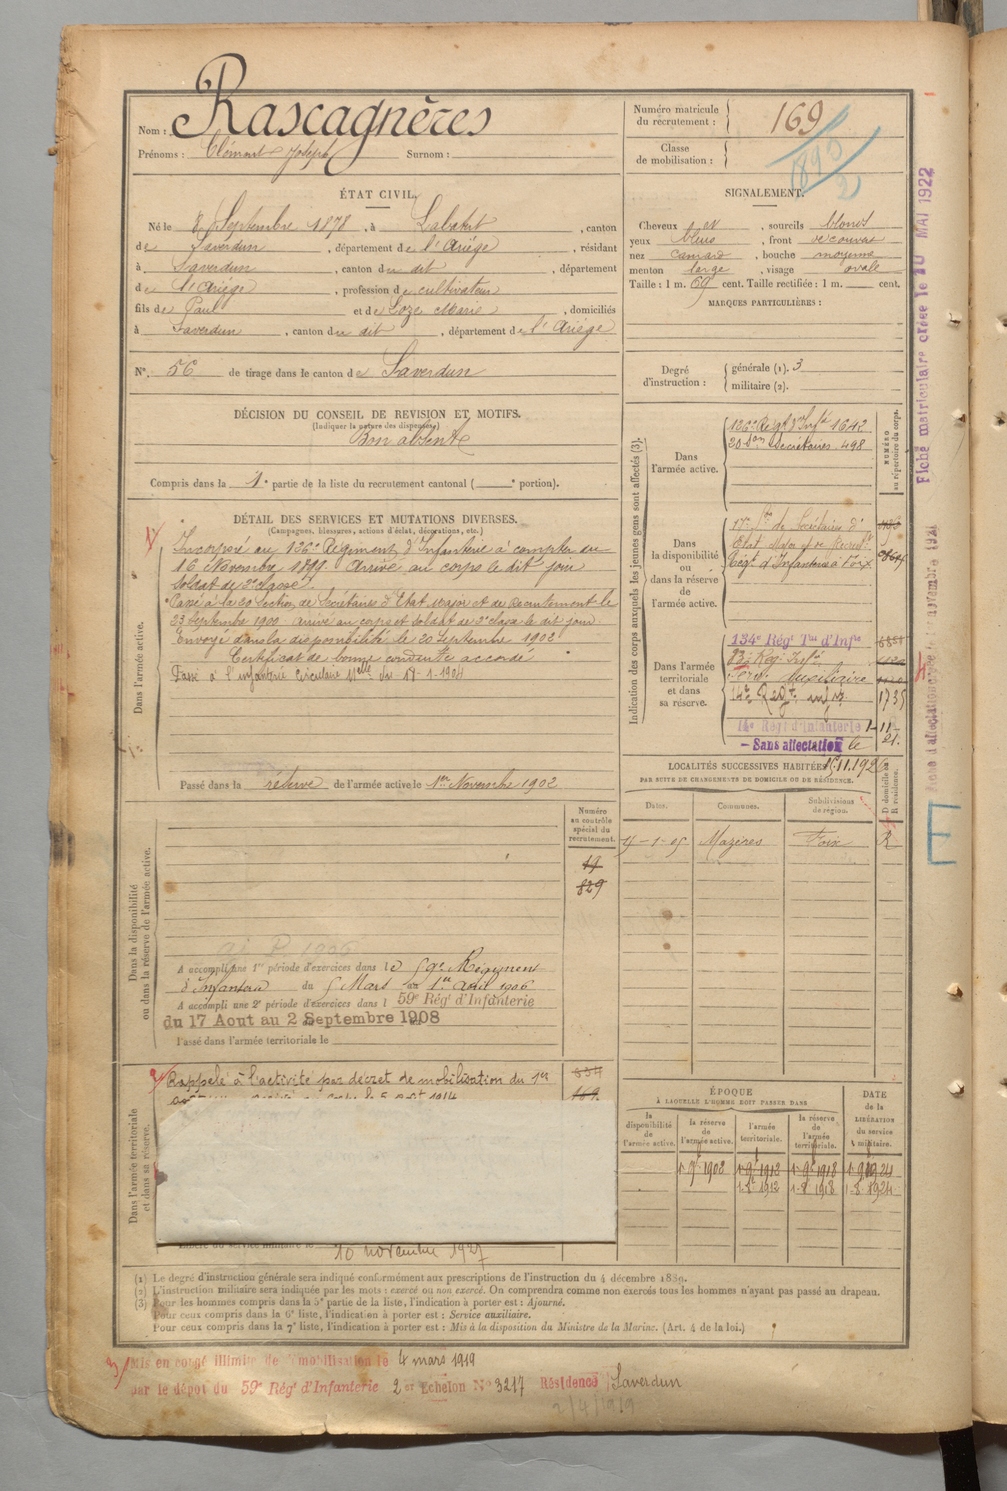 Nom : Rascagnères
Prénoms : Clément Joseph Surnom :
ÉTAT CIVIL.
Né le 8 Septembre 1878, à Labatut, canton
de Saverdun, département de l'Ariège, résidant
à Saverdun, canton du dit, département
de l'Ariège, profession de cultivateur
fils de Paul et de Loze Marie, domiciliés
à Saverdun, canton du dit, département de l'Ariège
N° 56 de tirage dans le canton de Saverdun
DÉCISION DU CONSEIL DE REVISION ET MOTIFS.
(Indiquer la nature des dispenses)
Bon absent
Compris dans la 1e partie de la liste du recrutement cantonal ( e portion).
DÉTAIL DES SERVICES ET MUTATIONS DIVERSES.
(Campagnes, blessures, actions d'éclat, décorations, etc.)
Dans l'armée active.
1/
Incorporé au 126e Régiment d'Infanterie à compter du
16 Novembre 1899. Arrivé au corps le dit jour
soldat de 2e classe
Passé à la 20 Section de Secrétaires d'Etat Major et de Recrutement le
23 Septembre 1900 arrivé au corps et soldat de 2e classe le dit jour
Envoyé dans la disponibilité le 20 Septembre 1902
Certificat de bonne conduite accordé
Passé à l'infanterie circulaire Mlle du 17-1-1904
Passé dans la réserve de l'armée active le 1er Novembre 1902
Dans la disponibilité
ou dans la réserve de l'armée active.
Numéro
au contrôle
spécial du
recrutement.
19
829
A accompli une 1re période d'exercices dans le 59e Régiment
d'Infanterie du 5 Mars au 1er Avril 1906
A accompli une 2e période d'exercices dans l 59e Rég' d'Infanterie
du 17 Aout au 2 Septembre 1908
Passé dans l'armée territoriale le
Dans l'armée territoriale
et dans sa réserve.
2/
Rappelé à l'activité par décret de mobilisation du 1er
Libéré du service militaire le 10 novembre 1927
Numéro matricule
du recrutement :
169
Classe
de mobilisation :
1895
2
SIGNALEMENT.
Cheveux et, sourcils blonds
yeux bleus, front découvert
nez camard, bouche moyenne
menton large, visage ovale
Taille : 1 m. 69 cent. Taille rectifiée : 1 m. cent.
MARQUES PARTICULIÈRES :
Degré
d'instruction :
générale (1). 3
militaire (2).
Indication des corps auxquels les jeunes gens sont affectés (3).
NUMÉRO
au répertoire du corps.
Dans
l'armée active.
126e Régt d'Infie 1642
20 Son Secrétaires 498
Dans
la disponibilité
ou
dans la réserve
de
l'armée active.
17e Son de Secrétaires d'
Etat Major et de Recrutt
Régt d'Infanterie à Foix
Dans l'armée
territoriale
et dans
sa réserve.
134e Régt Tal d'Infie
14e Régt 1735
14e Régt d'Infanterie 1-11
21.
Sans affectation le
15.11.1926
LOCALITÉS SUCCESSIVES HABITÉES
PAR SUITE DE CHANGEMENTS DE DOMICILE OU DE RÉSIDENCE.
Dates.
Communes.
Subdivisions
de région.
D domicile
R résidence.
Mazères Foix R
ÉPOQUE
À LAQUELLE L'HOMME DOIT PASSER DANS
la
disponibilité
de
l'armée active.
la réserve
de
l'armée active.
l'armée
territoriale.
la réserve
de
l'armée
territoriale.
DATE
de la
LIBÉRATION
du service
militaire.
1-9e 1902
1-8 1912 1-8 1918 1-8 1924
(1) Le degré d'instruction générale sera indiqué conformément aux prescriptions de l'instruction du 4 décembre 1889.
(2) L'instruction militaire sera indiquée par les mots : exercé ou non exercé. On comprendra comme non exercés tous les hommes n'ayant pas passé au drapeau.
(3) Pour les hommes compris dans la 5e partie de la liste, l'indication à porter est : Ajourné.
Pour ceux compris dans la 6e liste, l'indication à porter est : Service auxiliaire.
Pour ceux compris dans la 7e liste, l'indication à porter est : Mis à la disposition du Ministre de la Marine. (Art. 4 de la loi.)
3/ Mis en congé illimité de démobilisation le 4 mars 1919
par le dépôt du 59e Rég' d'Infanterie 2e Echelon N° 3217 Résidence Saverdun
2/4/1919
Fiche matriculaire créée le 10 MAI 1922
E